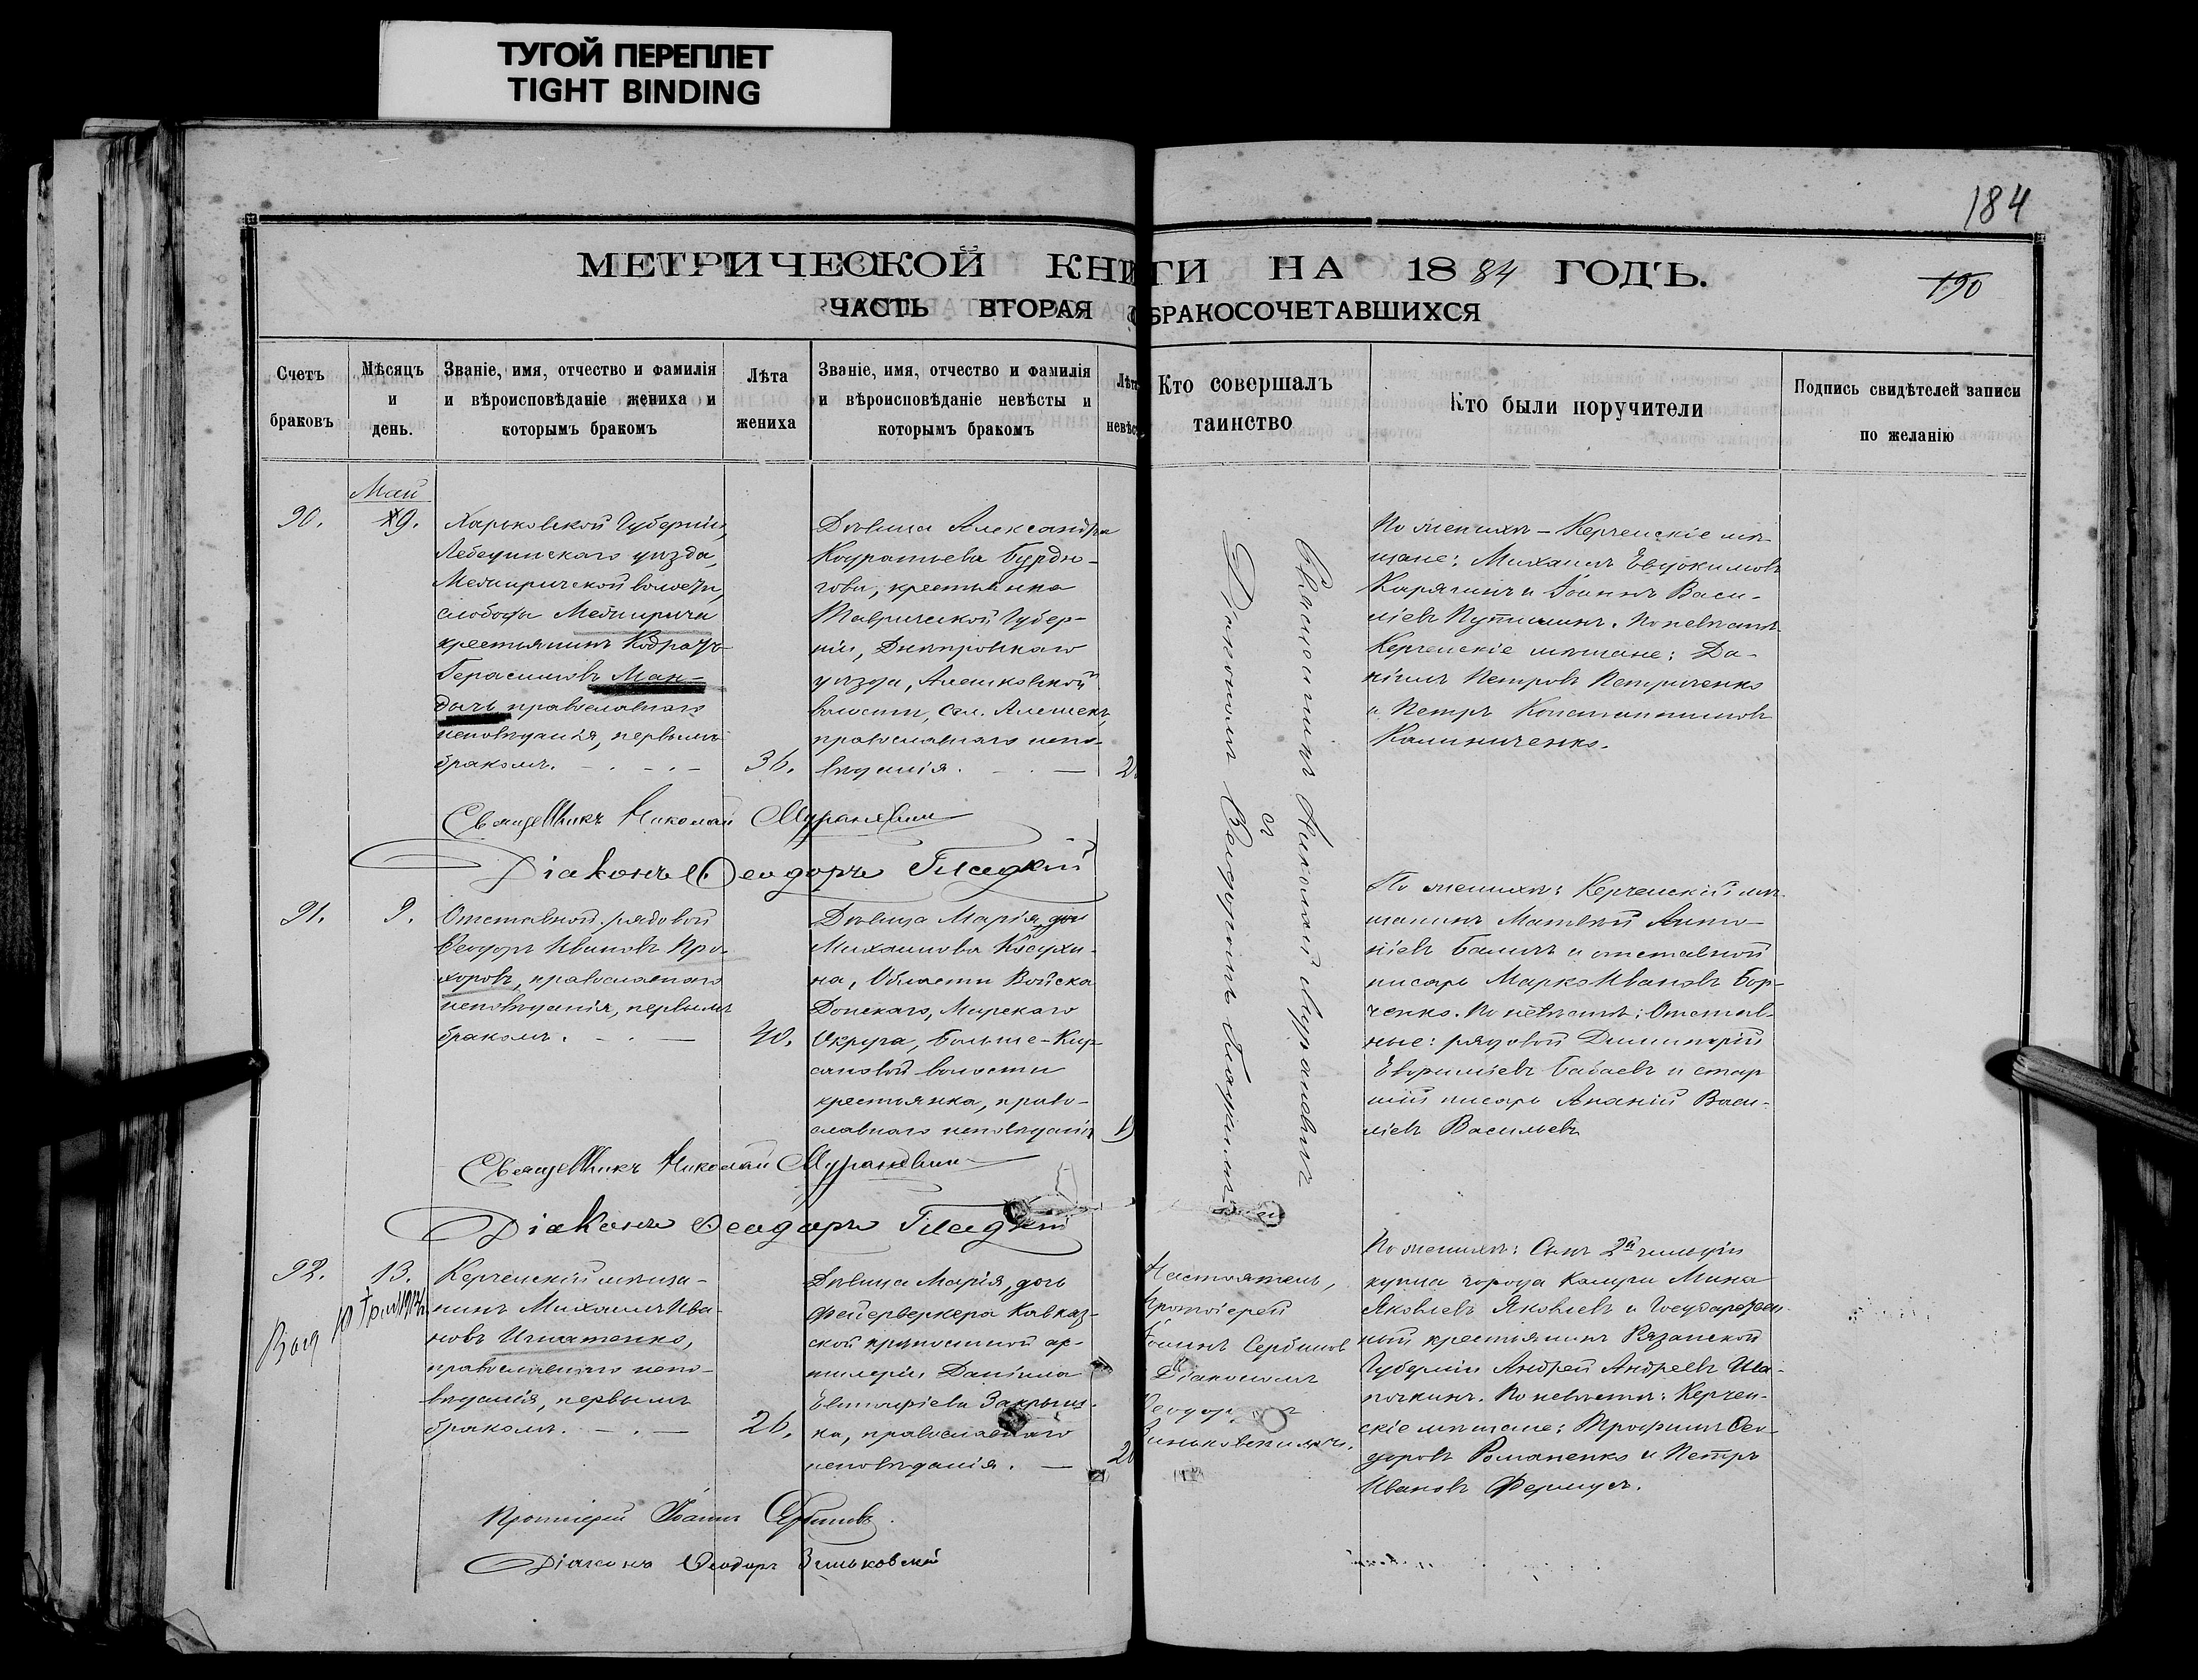 ТУГОЙ ПЕРЕПЛЕТ
TIGHT BINDING
184
МЕТРИЧЕСКОЙ КНИГИ НА 1884 ГОДЪ.
190
ЧАСТЬ ВТОРАЯ О БРАКОСОЧЕТАВШИХСЯ
Счетъ
браковъ
Мѣсяцъ
и
день.
Званіе, имя, отчество и фамилія
и вѣроисповѣданіе жениха и
которымъ бракомъ
Лѣта
жениха
Званіе, имя, отчество и фамилія
и вѣроисповѣданіе невѣсты и
которымъ бракомъ
Лѣта
невѣс
Кто совершалъ
таинство
Кто были поручители
Подпись свидѣтелей записи
по желанію
Май
90.
9.
Харьковской Губерніи,
Лебединскаго уѣзда,
Межирической волости,
слободы Межирича
крестьянинъ Кодратъ
Герасимовъ Ман-
дычъ православнаго
исповѣданія, первымъ
бракомъ.
36.
Дѣвица Александра
Кодратьева Бурдю-
гова, крестьянка
Таврической Губер-
ніи, Днѣпровскаго
уѣзда, Алешковской
волости, сел. Алешекъ,
православнаго испо-
вѣданія.
2
Священникъ Николай Мураневичъ
съ
Діакономъ Ѳеодоромъ Гладкимъ
По женихѣ - Керченскіе мѣ-
щане: Михаилъ Евдокимовъ
Карягинъ и Іоаннъ Васи-
ліевъ Путилинъ. По невѣстѣ
Керченскіе мѣщане: Да-
ніилъ Петровъ Петриченко
и Петръ Константиновъ
Калиниченко.
Священникъ Николай Мураневичъ
Діаконъ Ѳеодоръ Гладкій
91.
9.
Отставной рядовой
Ѳеодоръ Ивановъ Про-
хоровъ, православнаго
исповѣданія, первымъ
бракомъ.
40.
Дѣвица Марія, дочь
Михаилова Косухи-
на, Области Войска
Донскаго, Міускаго
Округа, Больше-Кир-
сановой волости
крестьянка, право-
славнаго исповѣданія
По женихѣ: Керченскій мѣ-
щанинъ Матвѣй Анто-
ніевъ Балычъ и отставной
писарь Марко Ивановъ Бор-
ченко. По невѣстѣ: Отстав-
ные: рядовой Димитрій
Ефиміевъ Бабаевъ и стар
шій писарь Ананій Васи-
ліевъ Васильевъ
Священникъ Николай Мураневичъ
Діаконъ Ѳеодоръ Гладкій
92.
13.
Керченскій мѣща-
нинъ Михаилъ Ива-
новъ Игнатенко,
православнаго испо-
вѣданія, первымъ
бракомъ.
26.
Дѣвица Марія, дочь
фейерверкера Кавказ-
ской крѣпостной ар-
тилеріи Даніила
Евстафіева Закрыш-
ка, православнаго
исповѣданія.
2
Настоятель,
Протоіерей
Іоаннъ Сербиновъ
съ Діакономъ
Ѳеодоромъ
Зиньковскимъ.
По женихѣ: Сынъ 2й гильдіи
купца города Калуги Мина
Яковлевъ Яковлевъ и Государствен-
ный крестьянинъ Рязанской
Губерніи Андрей Андреевъ Ша-
почкинъ. По невѣстѣ: Керчен-
скіе мѣщане: Трофимъ Ѳео-
доровъ Романенко и Петръ
Ивановъ Фермусъ.
Протоіерей Іоаннъ Сербиновъ
Діаконъ Ѳеодоръ Зиньковскій